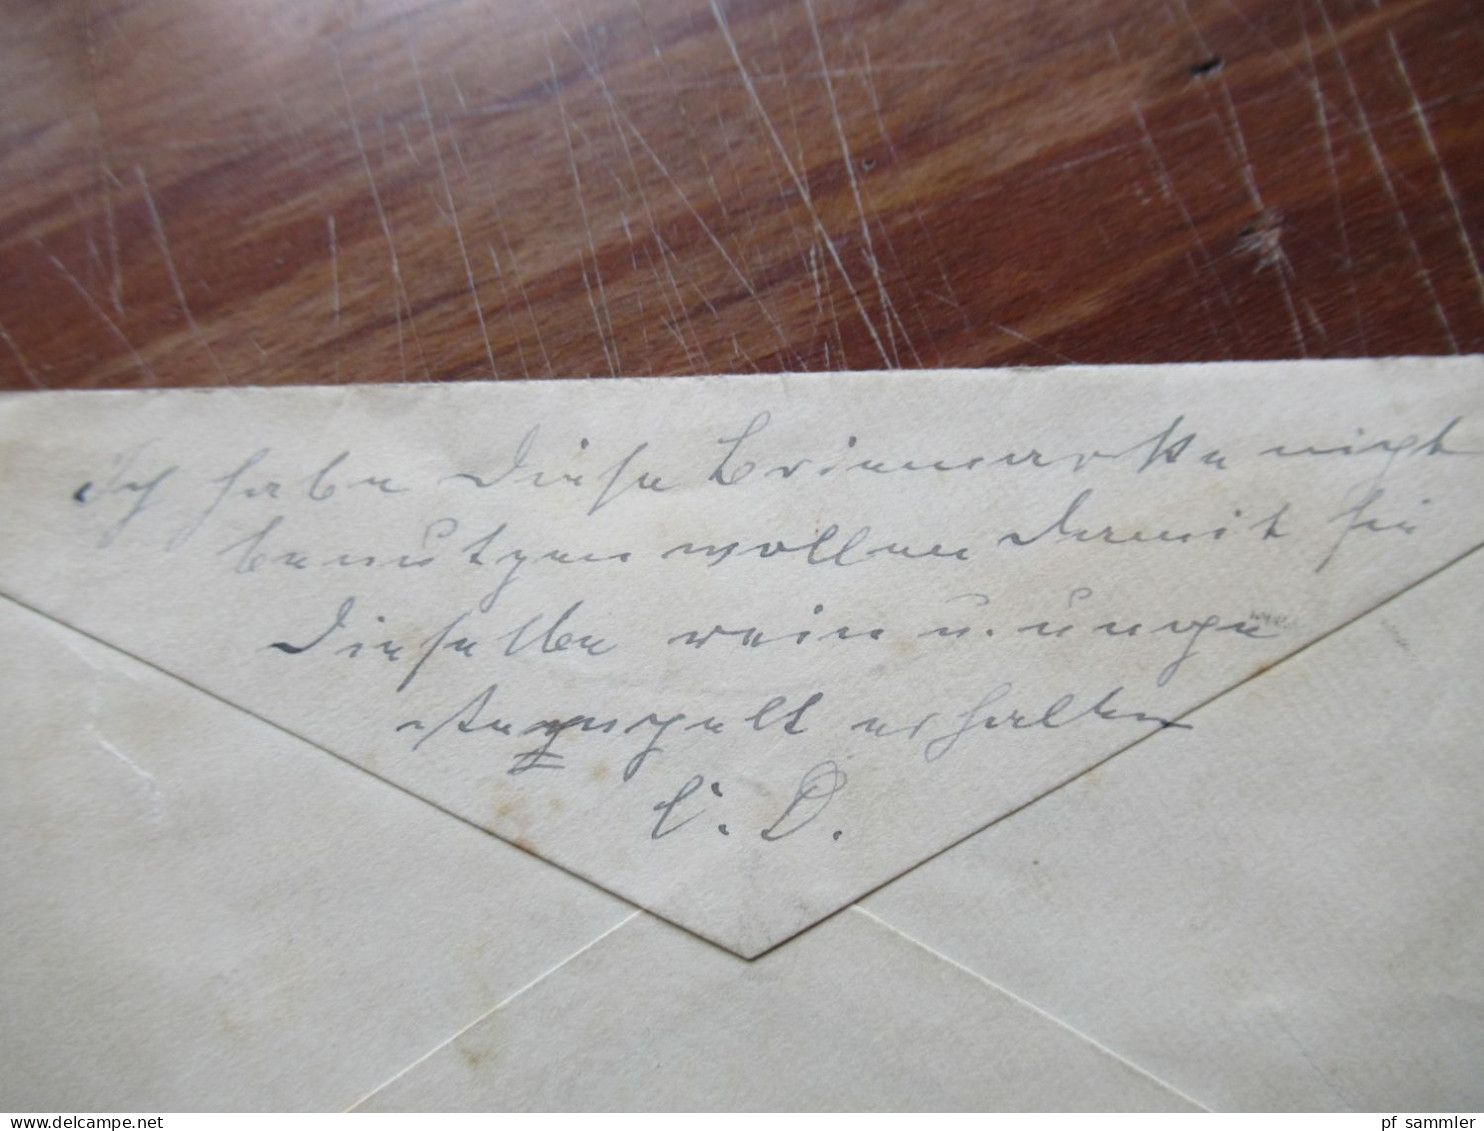 Ich habe diese Briemarke nicht
benutzen wollen damit sie
dieselbe rein u. unge
stempelt erhalten
C. D.
pf sammler